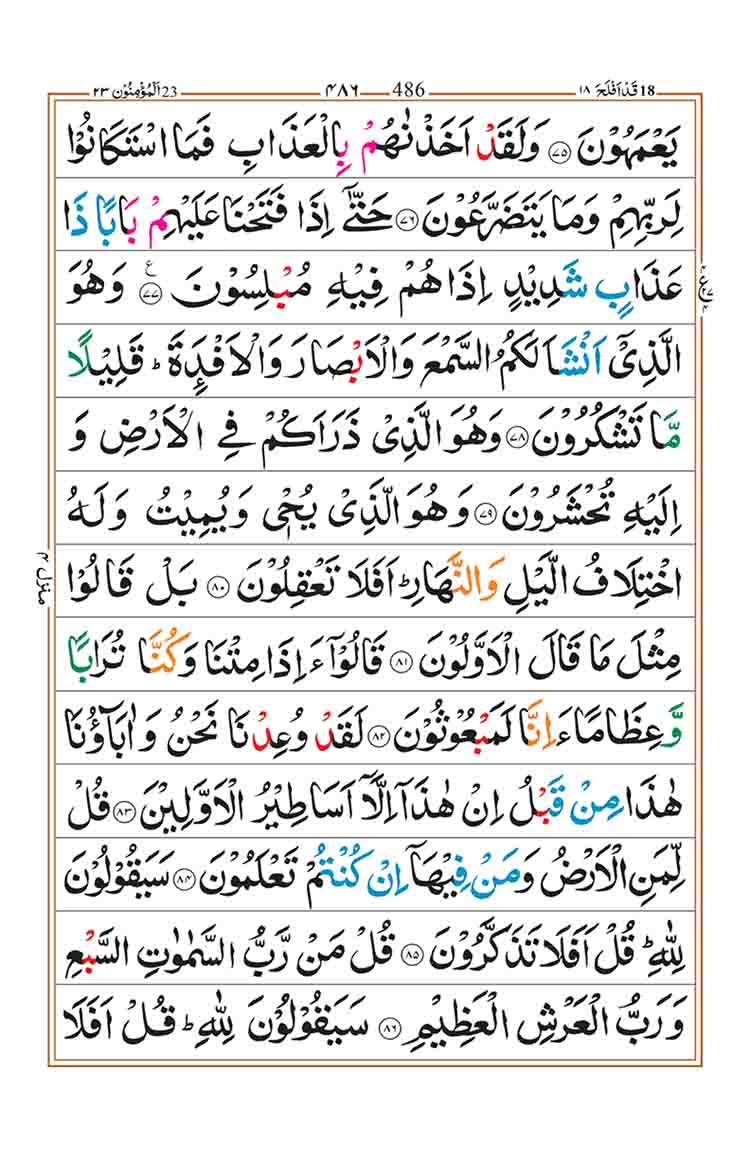 18 قَدْ اَفْلَحَ ١٨ 486 ٤٨٦ 23 اَلْمُؤْمِنُوْن ٢٣
يَعْمَهُوْنَ ﴿٧٥﴾ وَلَقَدْ اَخَذْنٰهُمْ بِالْعَذَابِ فَمَا اسْتَكَانُوْا
لِرَبِّهِمْ وَمَا يَتَضَرَّعُوْنَ ﴿٧٦﴾ حَتّٰۤى اِذَا فَتَحْنَا عَلَيْهِمْ بَابًا ذَا
عَذَابٍ شَدِيْدٍ اِذَا هُمْ فِيْهِ مُبْلِسُوْنَ ﴿٧٧﴾ ع وَهُوَ
الَّذِىْۤ اَنْشَاَ لَكُمُ السَّمْعَ وَالْاَبْصَارَ وَالْاَفْـِٕدَةَ ؕ قَلِيْلًا
مَّا تَشْكُرُوْنَ ﴿٧٨﴾ وَهُوَ الَّذِىْ ذَرَاَكُمْ فِى الْاَرْضِ وَ
اِلَيْهِ تُحْشَرُوْنَ ﴿٧٩﴾ وَهُوَ الَّذِىْ يُحْىٖ وَيُمِيْتُ وَلَهُ
اخْتِلَافُ الَّيْلِ وَالنَّهَارِ ؕ اَفَلَا تَعْقِلُوْنَ ﴿٨٠﴾ بَلْ قَالُوْا
مِثْلَ مَا قَالَ الْاَوَّلُوْنَ ﴿٨١﴾ قَالُوْۤا ءَاِذَا مِتْنَا وَكُنَّا تُرَابًا
وَّعِظَامًا ءَاِنَّا لَمَبْعُوْثُوْنَ ﴿٨٢﴾ لَقَدْ وُعِدْنَا نَحْنُ وَاٰبَآؤُنَا
هٰذَا مِنْ قَبْلُ اِنْ هٰذَاۤ اِلَّاۤ اَسَاطِيْرُ الْاَوَّلِيْنَ ﴿٨٣﴾ قُلْ
لِّمَنِ الْاَرْضُ وَمَنْ فِيْهَاۤ اِنْ كُنْتُمْ تَعْلَمُوْنَ ﴿٨٤﴾ سَيَقُوْلُوْنَ
لِلّٰهِ ؕ قُلْ اَفَلَا تَذَكَّرُوْنَ ﴿٨٥﴾ قُلْ مَنْ رَّبُّ السَّمٰوٰتِ السَّبْعِ
وَرَبُّ الْعَرْشِ الْعَظِيْمِ ﴿٨٦﴾ سَيَقُوْلُوْنَ لِلّٰهِ ؕ قُلْ اَفَلَا
منزل ٤